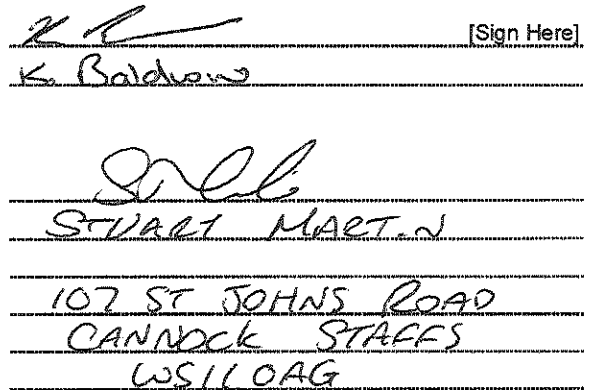 [Sign Here]
K. Baldwin
STUART MARTIN
107 ST JOHNS ROAD
CANNOCK STAFFS
WS11 0AG